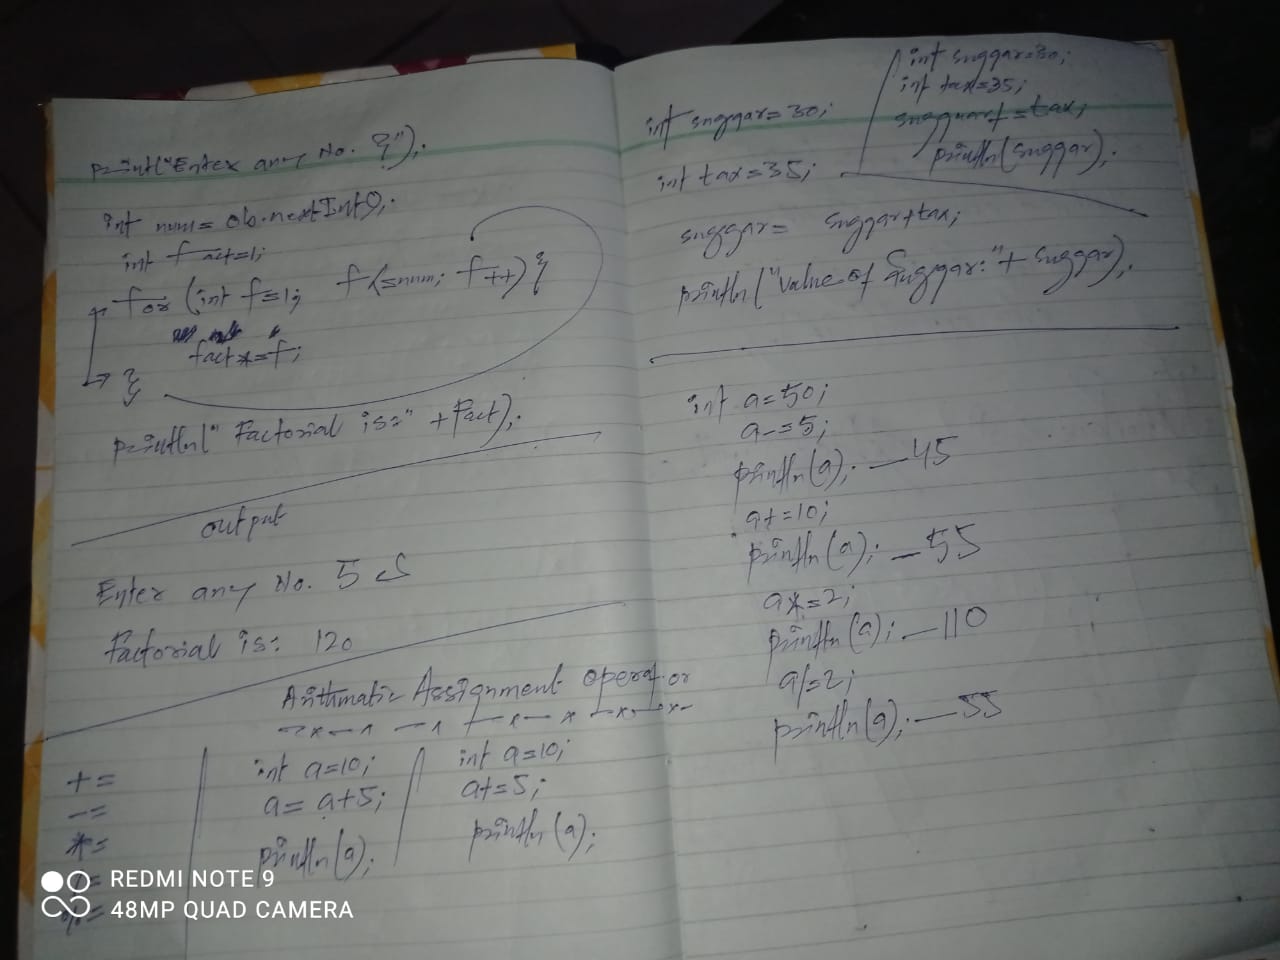 print("Enter any No. ?");
int num= ob.nextInt();
int fact=1;
for (int f=1; f<=num; f++) {
fact*=f;
}
println(" Factorial is:" + fact);
output
Enter any No. 5
Factorial is: 120
Arithmatic Assignment operator
+=
-=
*=
/=
%=
int a=10;
a= a+5;
println(a);
int a=10;
a+=5;
println(a);
int suggar=30;
int tax=35;
suggar= suggar+tax;
println("Value of Suggar:"+ suggar);
int suggar=30;
int tax=35;
+=tax;
println(suggar);
int a=50;
a-=5;
println(a); —45
a+=10;
println(a); —55
a*=2;
println(a); —110
a/=2;
println(a); —55
REDMI NOTE 9
48MP QUAD CAMERA